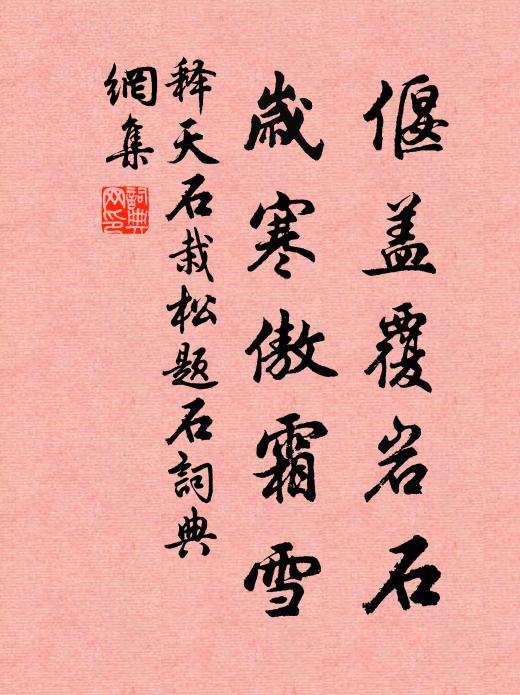 偃盖覆岩石
歲寒傲霜雪
释天石栽松题石詞典
網集
詞典
网印